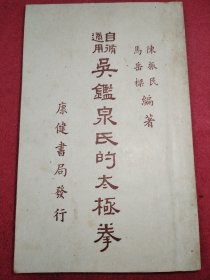 陳振民
馬岳樑
編著
自修適用
吳鑑泉氏的太極拳
康健書局發行